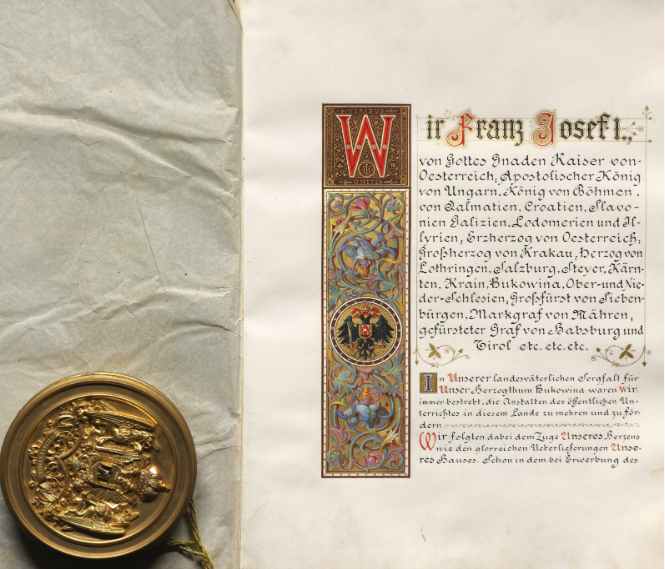 Wir Franz Josef I.,
von Gottes Gnaden Kaiser von
Oesterreich, Apostolischer König
von Ungarn, König von Böhmen,
von Dalmatien, Croatien, Slavo-
nien Galizien, Lodomerien und Il-
lyrien; Erzherzog von Oesterreich;
Großherzog von Krakau; Herzog von
Lothringen, Salzburg, Steyer, Kärn-
ten, Krain, Bukowina, Ober- und Nie-
der-Schlesien; Großfürst von Sieben-
bürgen, Markgraf von Mähren;
gefürsteter Graf von Habsburg und
Tirol etc. etc. etc.
In Unserer landesväterlichen Sorgfalt für
Unser Herzogthum Bukowina waren Wir
immer bestrebt, die Anstalten des öffentlichen Un-
terrichtes in diesem Lande zu mehren und zu för-
dern
Wir folgten dabei dem Zuge Unseres Herzens
wie den glorreichen Ueberlieferungen Unse-
res Hauses. Schon in dem bei Erwerbung des